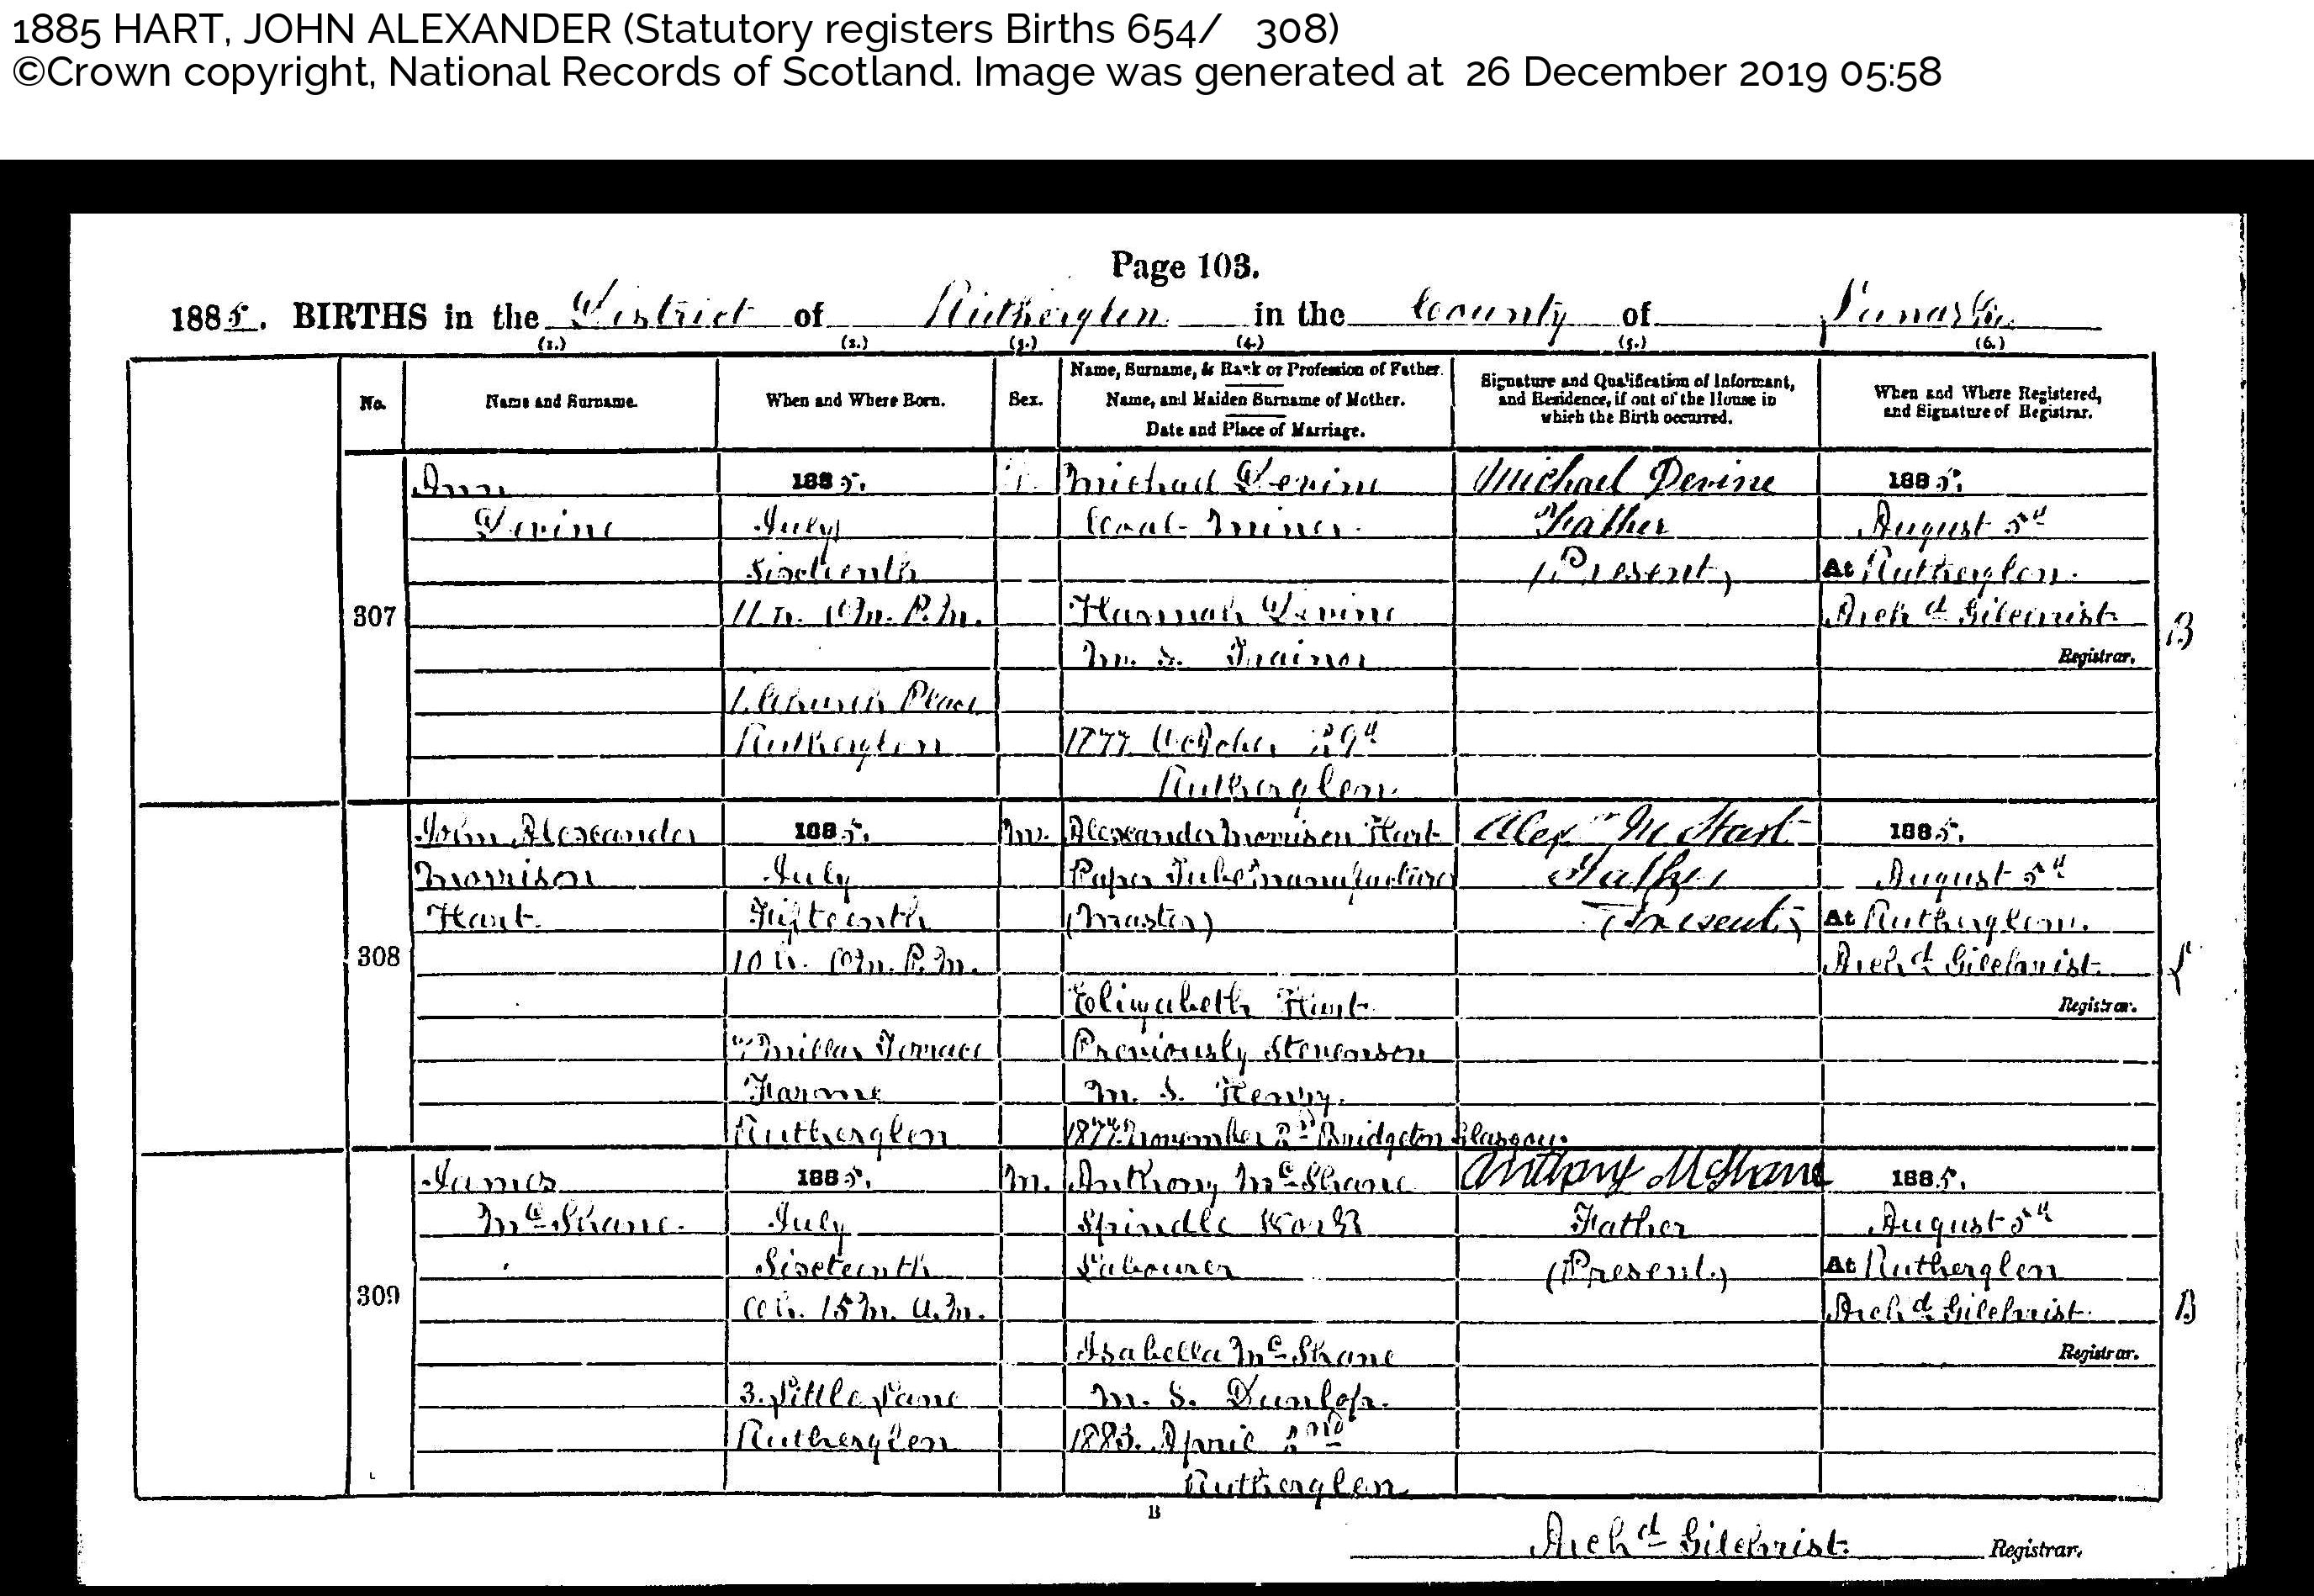 1885 HART, JOHN ALEXANDER (Statutory registers Births 654/ 308)
©Crown copyright, National Records of Scotland. Image was generated at 26 December 2019 05:58
Page 103.
1885. BIRTHS in the District of Rutherglen in the County of Lanark
(1.) (2.) (3.) (4.) (5.) (6.)
No.
Name and Surname.
When and Where Born.
Sex.
Name, Surname, & Rank or Profession of Father.
Name, and Maiden Surname of Mother.
Date and Place of Marriage.
Signature and Qualification of Informant,
and Residence, if out of the House in
which the Birth occurred.
When and Where Registered,
and Signature of Registrar.
307
Ann
Devine
1885.
July
Sixteenth
11 h. 0 m. P.M.
1. Church Place
Rutherglen
F.
Michael Devine
Coal-Miner.
Hannah Devine
M. S. Trainor
1877 October 29th
Rutherglen.
Michael Devine
Father
(Present)
1885.
August 5th
At Rutherglen.
Archd Gilchrist
Registrar.
B
308
John Alexander
Morrison
Hart.
1885.
July
Fifteenth
10 h. 0 m. P.M.
Millar Terrace
Farme
Rutherglen
M.
Alexander Morrison Hart
Paper Tube Manufacturer
(Master)
Elizabeth Hart
Previously Stevenson
M. S. Henry.
1877. November 2nd Bridgeton Glasgow.
Alexr M Hart
Father
(Present)
1885.
August 5th
At Rutherglen.
Archd Gilchrist.
Registrar.
309
James
McShane.
1885.
July
Sixteenth
0 h. 15 m. A.M.
3. Little Lane
Rutherglen
M.
Anthony McShane
Spindle Work
Labourer
Isabella McShane
M. S. Dunlop.
1883. April 2nd
Rutherglen
Anthony McShane
Father
(Present)
1885.
August 5th
At Rutherglen
Archd Gilchrist.
Registrar.
B
B
Archd Gilchrist. Registrar.